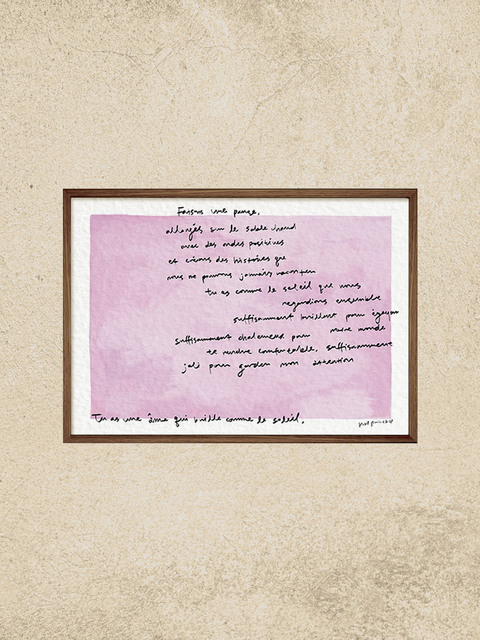 Faisons une pause,
allongés sur le sable chaud
avec des ondes positives
et créons des histoires que
nous ne pourrons jamais raconter
tu es comme le soleil que nous
regardions ensemble
suffisamment brillant pour égayer
notre monde
suffisamment chaleureux pour
te rendre confortable, suffisamment
joli pour garder mon attention
Tu as une âme qui brille comme le soleil.